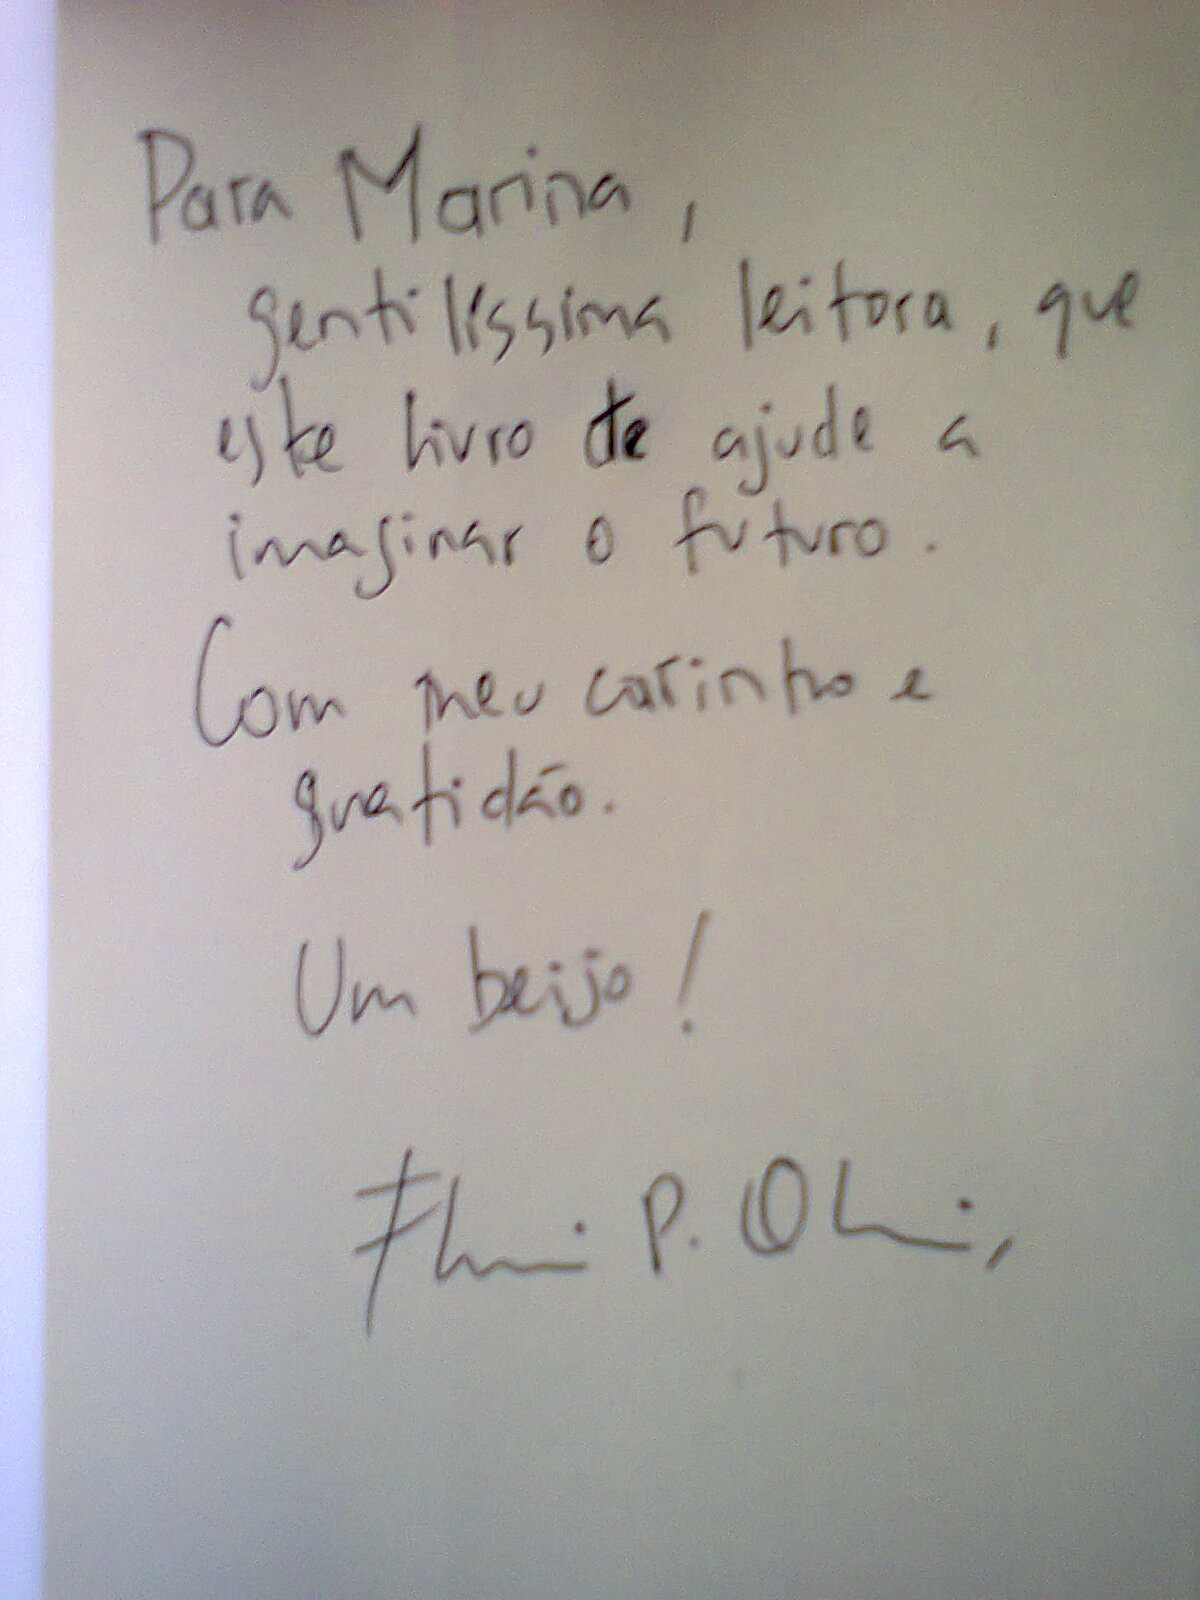 Para Marina,
gentilíssima leitora, que
este livro te ajude a
imaginar o futuro.
Com meu carinho e
gratidão.
Um beijo!
P.